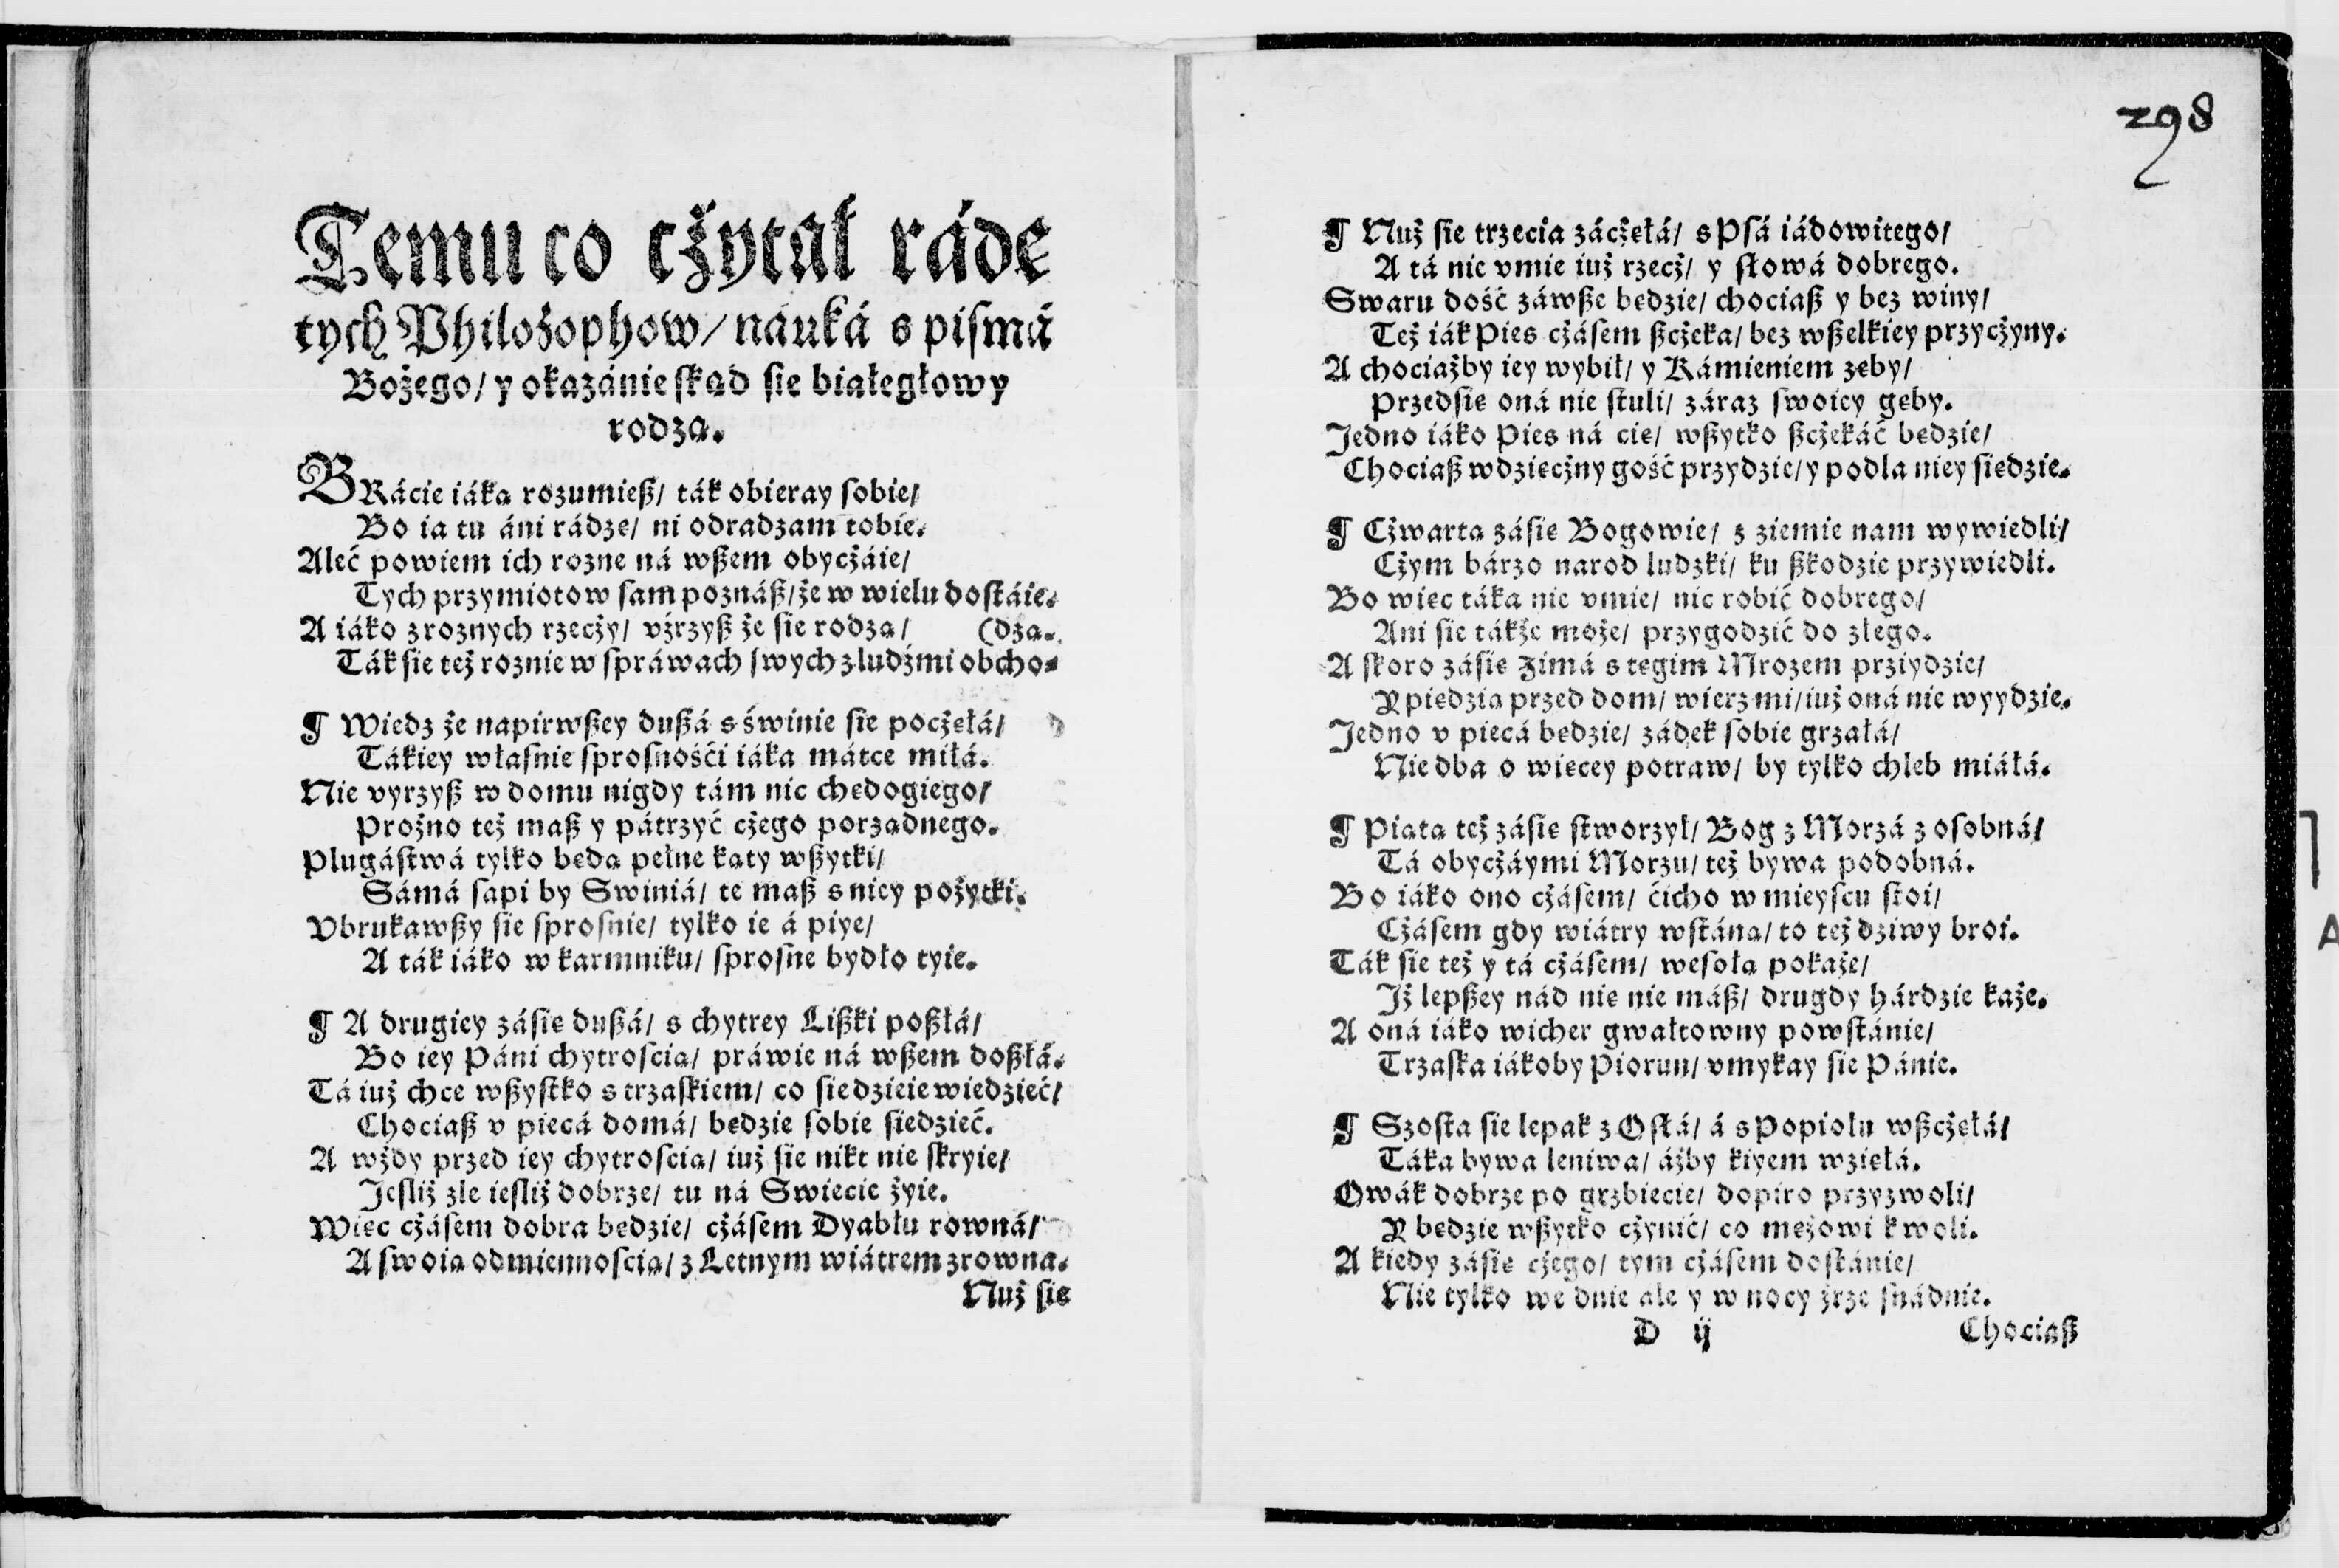 Temu co cżytał ráde
tych Philożophow/ náuká s pismá
Bożego/ y okazánie skąd sie białegłowy
rodzą.
BRácie iáka rozumieß/ ták obieray sobie/
Bo ia tu áni rádze/ ni odradzam tobie.
Aleć powiem ich rozne ná wßem obycżáie/
Tych przymiotow sam poznáß/ że w wielu dostáie.
A iáko z roznych rzecży/ vźrzyß że sie rodzą/ (dzą.
Ták sie też roznie w spráwach swych z ludźmi obcho-
¶ Wiedz że napirwßey dußá s świnie sie pocżęłá/
Tákiey własnie sprosnośći iáka mátce miłá.
Nie vyrzyß w domu nigdy tám nic chędogiego/
Prożno też maß y pátrzyć cżego porządnego.
Plugástwá tylko będą pełne kąty wßytki/
Sámá sapi by Swiniá/ te maß s niey pożytki.
Vbrukawßy sie sprosnie/ tylko ie á piye/
A ták iáko w karmniku/ sprosne bydło tyie.
¶ A drugiey zásię dußá/ s chytrey Lißki poßłá/
Bo iey Páni chytroscią/ práwie ná wßem doßłá.
Tá iuż chce wßystko s trzaskiem/ co sie dzieie wiedzieć/
Chociaß v piecá domá/ będzie sobie siedzieć.
A wżdy przed iey chytroscią/ iuż się nikt nie skryie/
Jesliż zle iesliż dobrze/ tu ná Swiecie żyie.
Więc cżásem dobra będzie/ cżásem Dyabłu rowná/
A swoią odmiennoscią/ z Letnym wiátrem zrowna.
Nuż sie
298
¶ Nuż sie trzecia zácżęłá/ s Psá iádowitego/
A tá nic vmie iuż rzecż/ y słowá dobrego.
Swaru dość záwße będzie/ chociaß y bez winy/
Też iák Pies cżásem ßcżeka/ bez wßelkiey przycżyny.
A chociażby iey wybił/ y Kámieniem zęby/
Przedsię oná nie stuli/ záraz swoiey gęby.
Jedno iáko Pies ná cię/ wßytko ßcżekáć będzie/
Chociaß wdzięcżny gość przydzie/ y podla niey siędzie.
¶ Cżwarta zásię Bogowie/ z ziemie nam wywiedli/
Cżym bárzo narod ludzki/ ku ßkodzie przywiedli.
Bo więc táka nic vmie/ nic robić dobrego/
Ani sie tákże może/ przygodzić do złego.
A skoro zásię Zimá s tęgim Mrozem prziydzie/
Y piędzią przed dom/ wierz mi/ iuż oná nie wyydzie.
Jedno v piecá będzie/ zádek sobie grzałá/
Nie dba o więcey potraw/ by tylko chleb miáłá.
¶ Piąta też zásię stworzył/ Bog z Morzá z osobná/
Tá obycżáymi Morzu/ też bywa podobná.
Bo iáko ono cżásem/ ćicho w mieyscu stoi/
Cżásem gdy wiátry wstáną/ to też dziwy broi.
Ták sie też y tá cżásem/ wesoła pokaże/
Jż lepßey nád nię nie máß/ drugdy hárdzie każe.
A oná iáko wicher gwałtowny powstánie/
Trzaska iákoby Piorun/ vmykay sie Pánie.
¶ Szosta sie lepak z Osłá/ á s Popiołu wßcżęłá/
Táka bywa leniwa/ áżby kiyem wzięłá.
Owák dobrze po grzbiecie/ dopiro przyzwoli/
Y będzie wßytko cżynić/ co mężowi k woli.
A kiedy zásię cżego/ tym cżásem dostánie/
Nie tylko we dnie ale y w nocy żrze snádnie.
D ij Chociaß